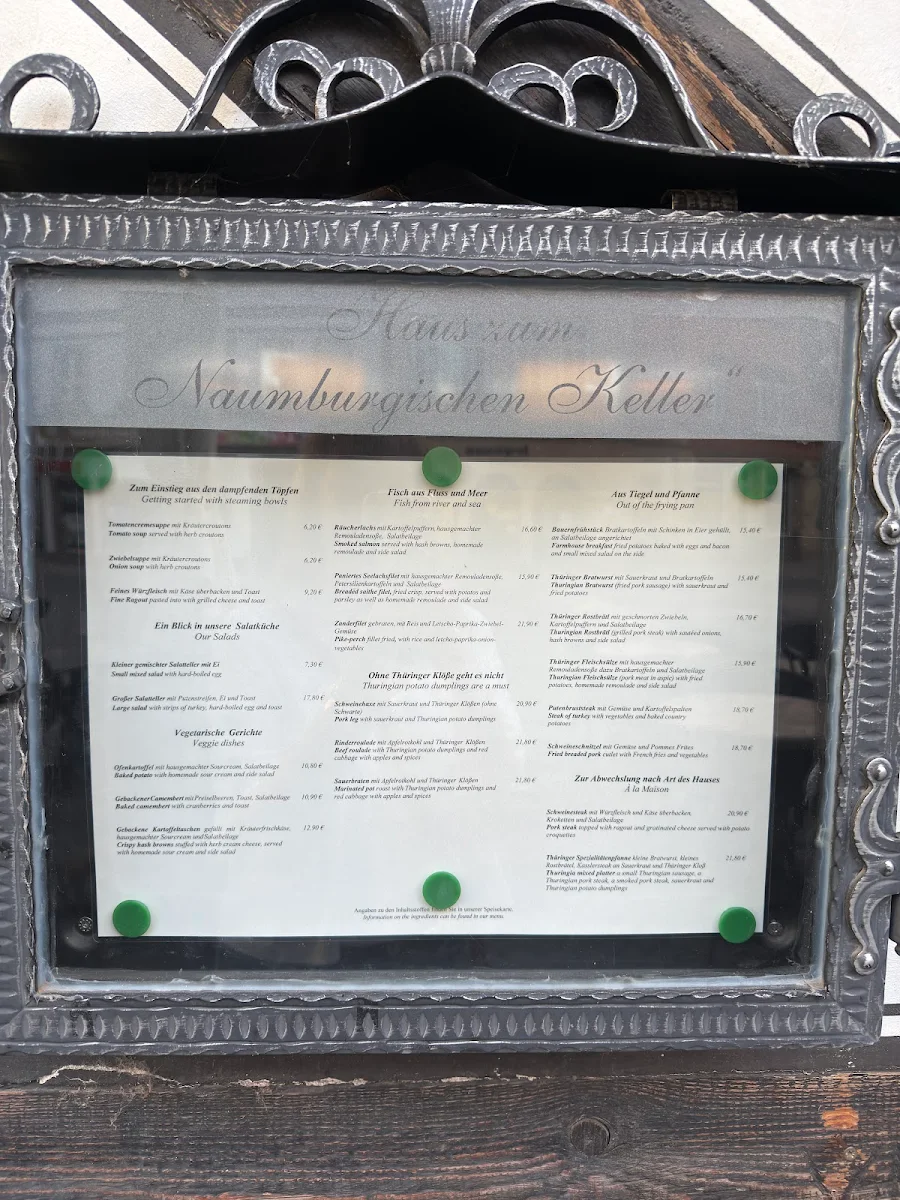 Haus zum
Naumburgischen Keller“
Zum Einstieg aus den dampfenden Töpfen
Getting started with steaming bowls
Tomatencremesuppe mit Kräutercroutons 6,20 €
Tomato soup served with herb croutons
Zwiebelsuppe mit Kräutercroutons 6,20 €
Onion soup with herb croutons
Feines Würzfleisch mit Käse überbacken und Toast 9,20 €
Fine Ragout passed into with grilled cheese and toast
Ein Blick in unsere Salatküche
Our Salads
Kleiner gemischter Salatteller mit Ei 7,30 €
Small mixed salad with hard-boiled egg
Großer Salatteller mit Putenstreifen, Ei und Toast 17,80 €
Large salad with strips of turkey, hard-boiled egg and toast
Vegetarische Gerichte
Veggie dishes
Ofenkartoffel mit hausgemachter Sourcream, Salatbeilage 10,80 €
Baked potato with homemade sour cream and side salad
Gebackener Camembert mit Preiselbeeren, Toast, Salatbeilage 10,90 €
Baked camembert with cranberries and toast
Gebackene Kartoffeltaschen gefüllt mit Kräuterfrischkäse, 12,90 €
hausgemachter Sourcream und Salatbeilage
Crispy hash browns stuffed with herb cream cheese, served
with homemade sour cream and side salad
Fisch aus Fluss und Meer
Fish from river and sea
Räucherlachs mit Kartoffelpuffern, hausgemachter 16,60 €
Remouladensoße, Salatbeilage
Smoked salmon served with hash browns, homemade
remoulade and side salad
Paniertes Seelachsfilet mit hausgemachter Remouladensoße, 15,90 €
Petersilienkartoffeln und Salatbeilage
Breaded saithe filet, fried crispy, served with potatoes and
parsley as well as homemade remoulade and side salad
Zanderfilet gebraten, mit Reis und Letscho-Paprika-Zwiebel- 21,90 €
Gemüse
Pike-perch fillet fried, with rice and letcho-paprika-onion-
vegetables
Ohne Thüringer Klöße geht es nicht
Thuringian potato dumplings are a must
Schweinehaxe mit Sauerkraut und Thüringer Klößen (ohne 20,90 €
Schwarte)
Pork leg with sauerkraut and Thuringian potato dumplings
Rinderroulade mit Apfelrotkohl und Thüringer Klößen 21,80 €
Beef roulade with Thuringian potato dumplings and red
cabbage with apples and spices
Sauerbraten mit Apfelrotkohl und Thüringer Klößen 21,80 €
Marinated pot roast with Thuringian potato dumplings and
red cabbage with apples and spices
Aus Tiegel und Pfanne
Out of the frying pan
Bauernfrühstück Bratkartoffeln mit Schinken in Eier gehüllt, 15,40 €
an Salatbeilage angerichtet
Farmhouse breakfast fried potatoes baked with eggs and bacon
and small mixed salad on the side
Thüringer Bratwurst mit Sauerkraut und Bratkartoffeln 15,40 €
Thuringian Bratwurst (fried pork sausage) with sauerkraut and
fried potatoes
Thüringer Rostbrätl mit geschmorten Zwiebeln, 16,70 €
Kartoffelpuffern und Salatbeilage
Thuringian Rostbrätl (grilled pork steak) with sautéed onions,
hash browns and side salad
Thüringer Fleischsülze mit hausgemachter 15,90 €
Remouladensoße dazu Bratkartoffeln und Salatbeilage
Thuringian Fleischsülze (pork meat in aspic) with fried
potatoes, homemade remoulade and side salad
Putenbruststeak mit Gemüse und Kartoffelspalten 18,70 €
Steak of turkey with vegetables and baked country
potatoes
Schweineschnitzel mit Gemüse und Pommes Frites 18,70 €
Fried breaded pork cutlet with French fries and vegetables
Zur Abwechslung nach Art des Hauses
À la Maison
Schweinesteak mit Würzfleisch und Käse überbacken, 20,90 €
Kroketten und Salatbeilage
Pork steak topped with ragout and gratinated cheese served with potato
croquettes
Thüringer Spezialitätenpfanne kleine Bratwurst, kleines 21,80 €
Rostbrätel, Kasslersteak an Sauerkraut und Thüringer Kloß
Thuringia mixed platter a small Thuringian sausage, a
Thuringian pork steak, a smoked pork steak, sauerkraut and
Thuringian potato dumplings
Angaben zu den Inhaltsstoffen finden Sie in unserer Speisekarte.
Information on the ingredients can be found in our menu.